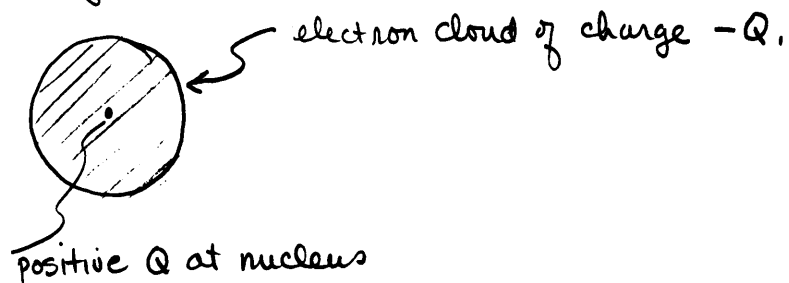 electron cloud of charge -Q.
positive Q at nucleus